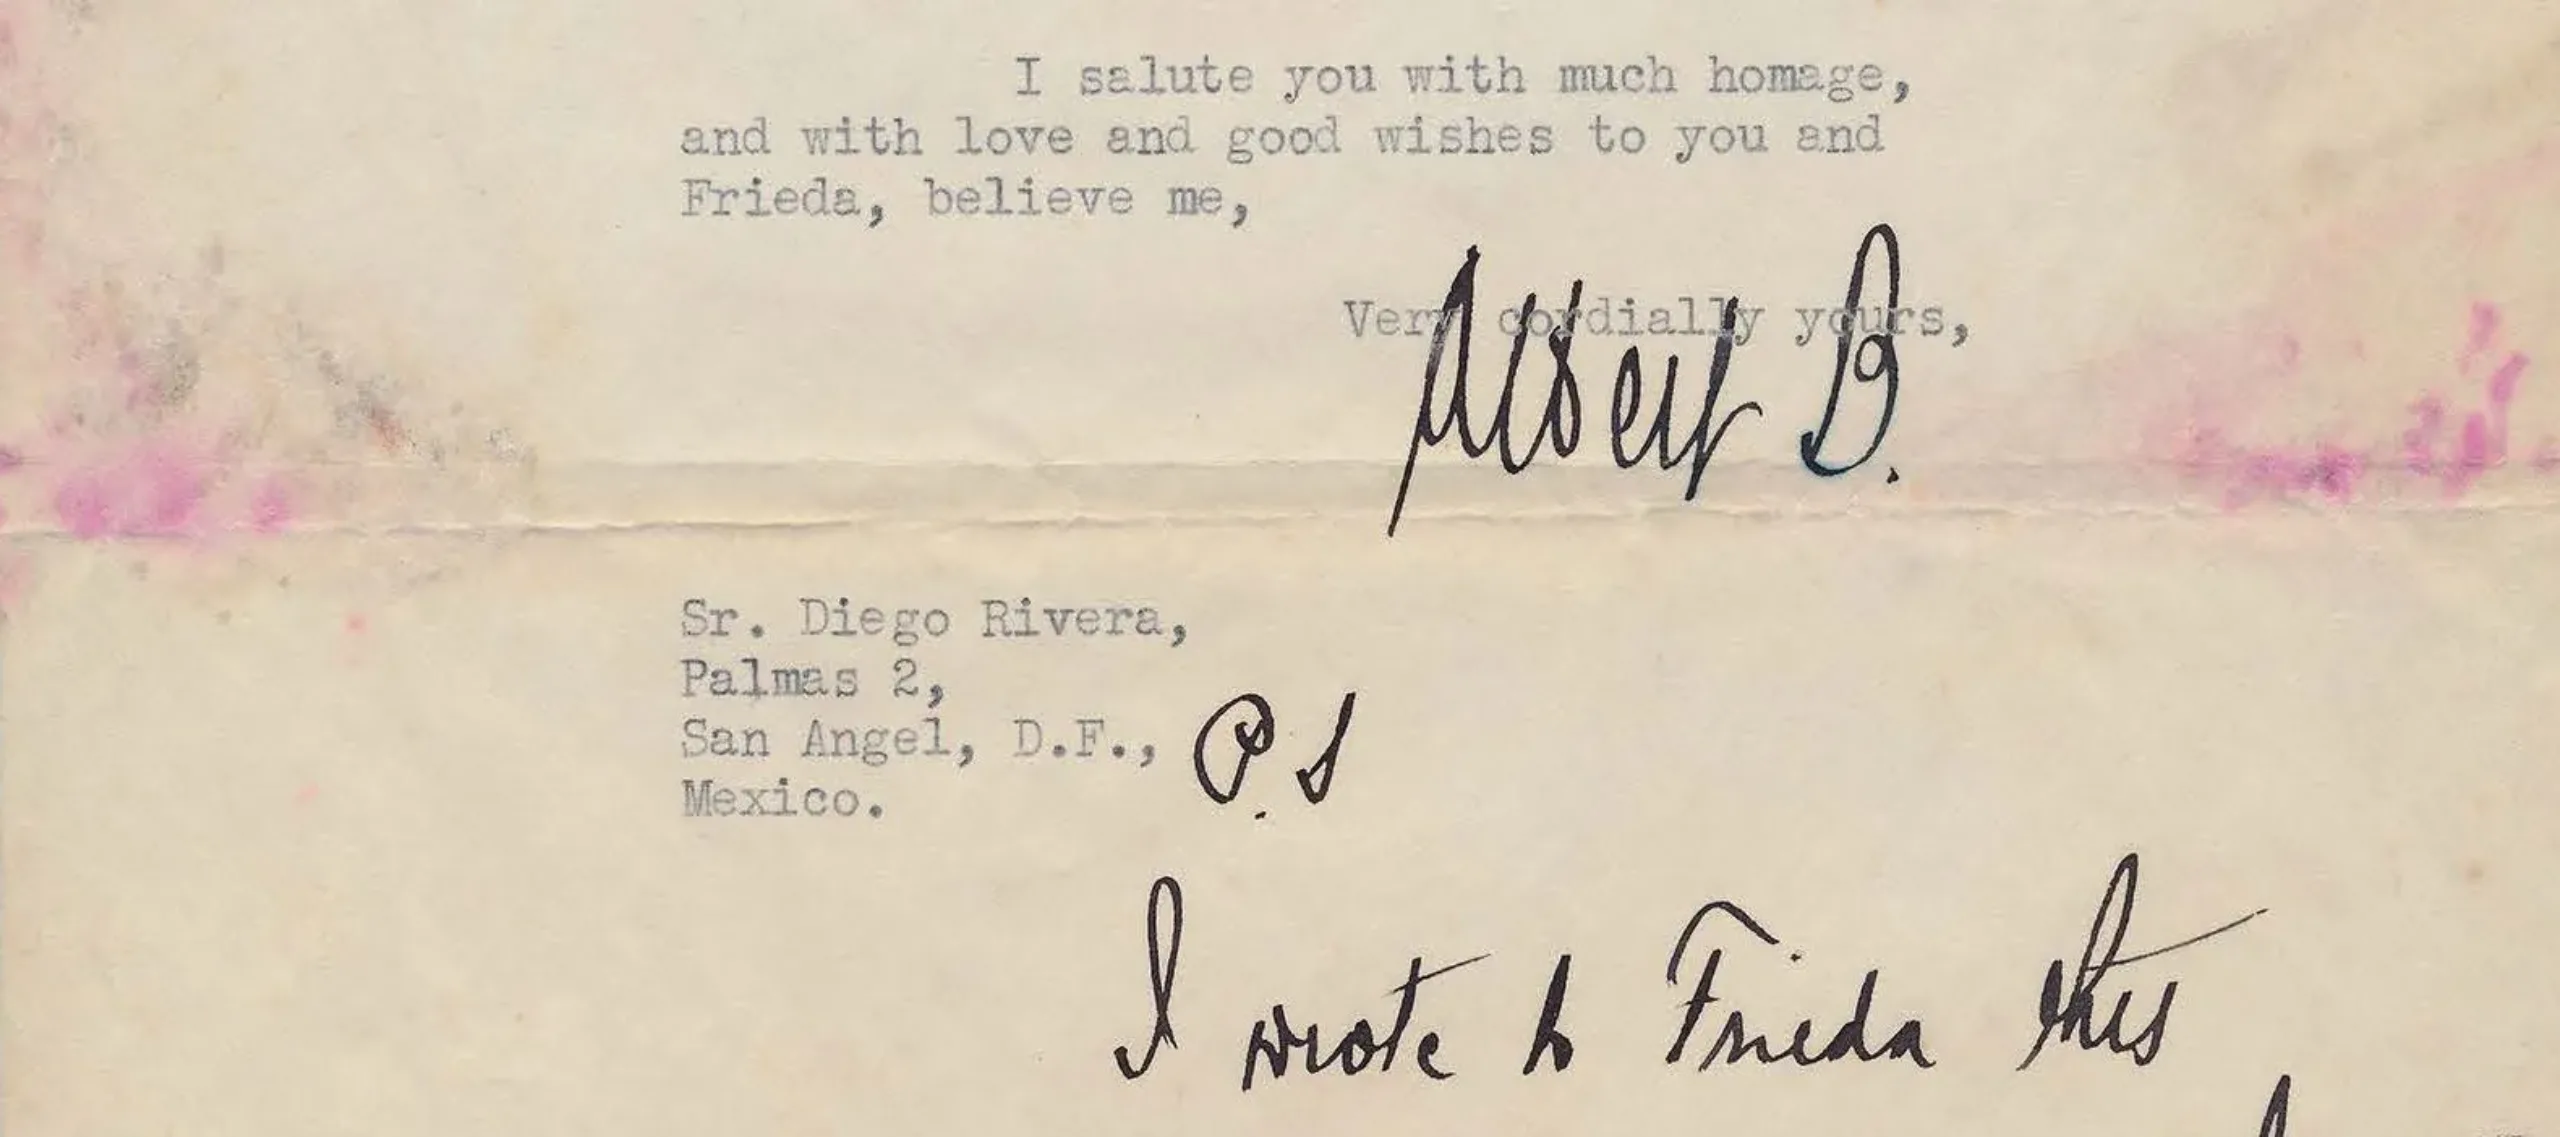 I salute you with much homage,
and with love and good wishes to you and
Frieda, believe me,
Very cordially yours,
Albert B.
Sr. Diego Rivera,
Palmas 2,
San Angel, D.F.,
Mexico.
P.S
I wrote to Frieda this